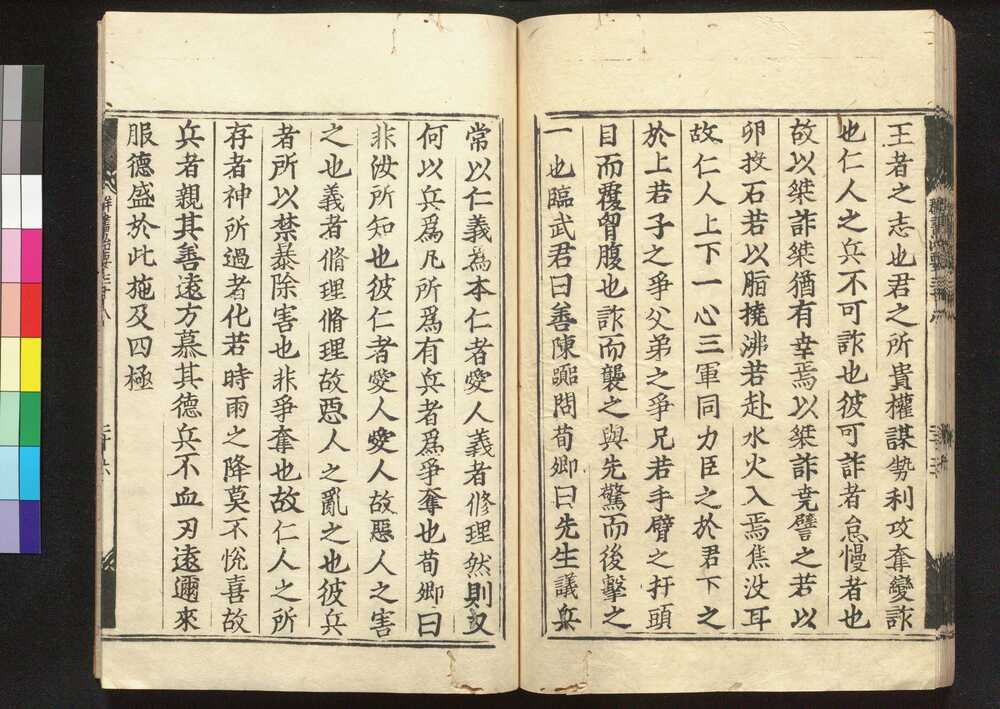 王者之志也君之所貴權謀勢利攻奪變詐
也仁人之兵不可詐也彼可詐者怠慢者也
故以桀詐桀猶有幸焉以桀詐堯譬之若以
卵投石若以脂撓沸若赴水火入焉焦沒耳
故仁人上下一心三軍同力臣之於君下之
於上若子之爭父弟之爭兄若手臂之扞頭
目而覆胷腹也詐而襲之與先驚而後擊之
一也臨武君曰善陳嚻問荀卿曰先生議兵
常以仁義爲本仁者愛人義者修理然則又
何以兵爲凡所爲有兵者爲爭奪也荀卿曰
非汝所知也彼仁者愛人愛人故惡人之害
之也義者脩理脩理故惡人之亂之也彼兵
者所以禁暴除害也非爭奪也故仁人之所
存者神所過者化若時雨之降莫不悅喜故
兵者親其善遠方慕其德兵不血刃遠邇來
服德盛於此施及四極
群書治要三十八